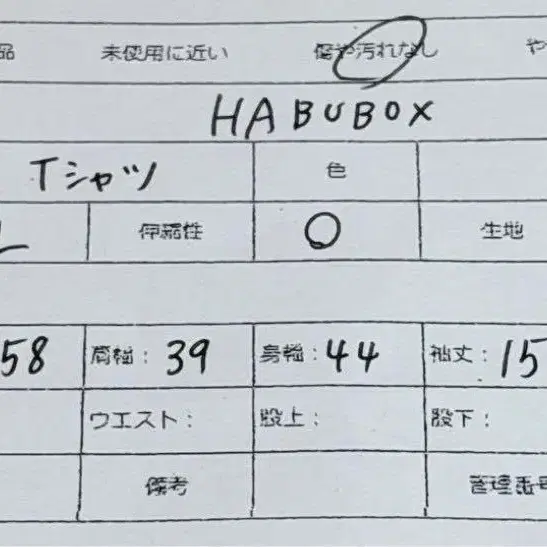 品 未使用に近い 傷や汚れなし や
HABUBOX
Tシャツ 色
L 伸縮性 ○ 生地
58 肩幅: 39 身幅: 44 袖丈: 15
ウエスト: 股上: 股下:
備考 管理番号